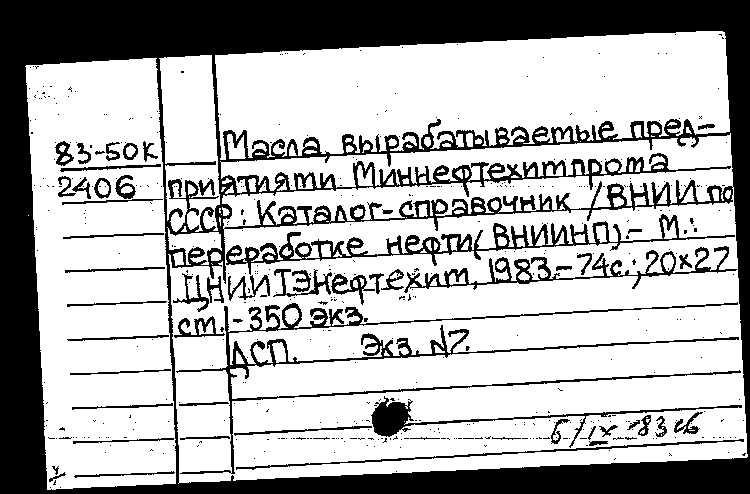 83-50К Масла, вырабатываемые пред-
2406 приятиями Миннефтехимпрома
СССР: Каталог-справочник / ВНИИ по
переработке нефти (ВНИИНП).- М.:
ЦНИИТЭнефтехим, 1983.- 74с.; 20×27
см. - 350 экз.
ДСП. Экз. №7.
6/IX-83